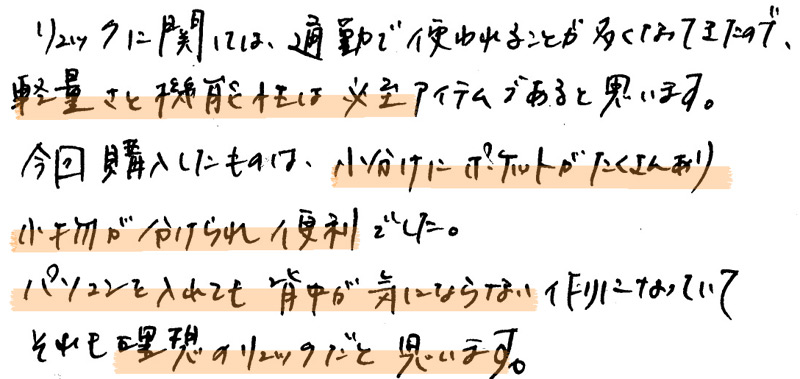 リュックに関しては、通勤で使われることが多くなってきたので、
軽量さと機能性は必至アイテムであると思います。
今回購入したものは、小分けにポケットがたくさんあり
小物が分けられ便利でした。
パソコンを入れても背中が気にならない作りになっていて
それも理想のリュックだと思います。